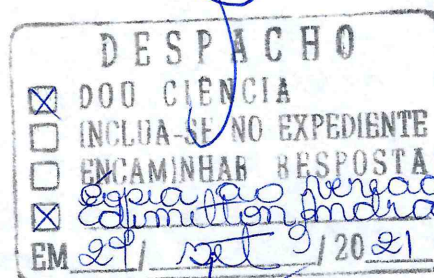 DESPACHO
DOU CIÊNCIA
INCLUA-SE NO EXPEDIENTE
ENCAMINHAR RESPOSTA
Cópia ao veread
Edimilton Andra
EM 29 / set / 2021